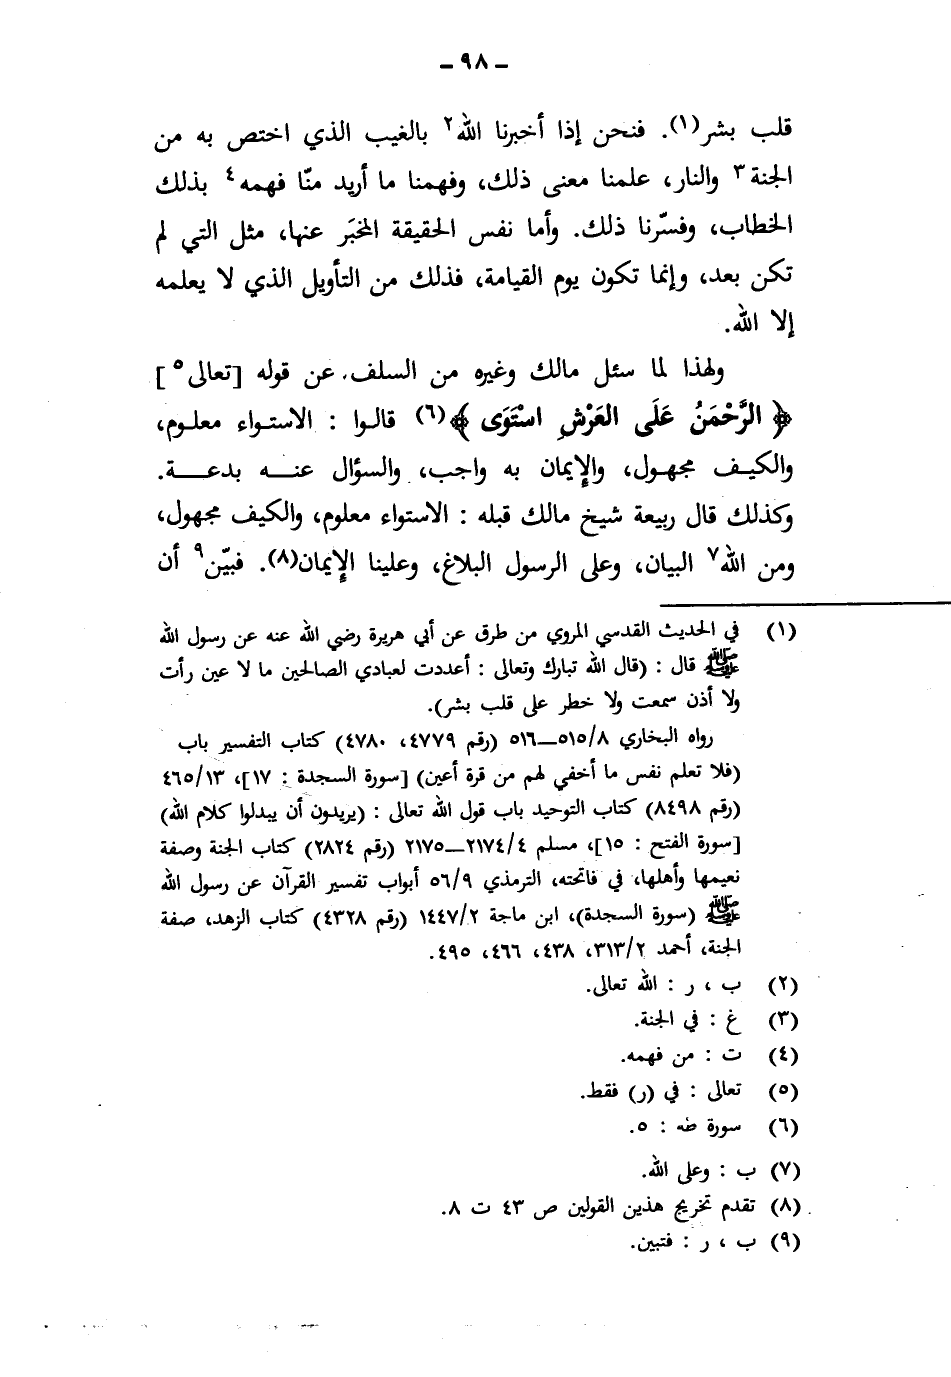 ـ ٩٨ ـ
قلب بشر(١). فنحن إذا أخبرنا الله٢ بالغيب الذي اختص به من
الجنة٣ والنار، علمنا معنى ذلك، وفهمنا ما أريد منّا فهمه٤ بذلك
الخطاب، وفسّرنا ذلك. وأما نفس الحقيقة المخبَر عنها، مثل التي لم
تكن بعد، وإنما تكون يوم القيامة، فذلك من التأويل الذي لا يعلمه
إلا الله.
ولهذا لما سئل مالك وغيره من السلف. عن قوله [تعالى٥]
﴿ الرَّحْمَنُ عَلَى العَرْشِ اسْتَوَى ﴾(٦) قالوا : الاستواء معلوم،
والكيف مجهول، والإيمان به واجب، والسؤال عنه بدعة.
وكذلك قال ربيعة شيخ مالك قبله : الاستواء معلوم، والكيف مجهول،
ومن الله٧ البيان، وعلى الرسول البلاغ، وعلينا الإيمان(٨). فبيّن٩ أن
(١) في الحديث القدسي المروي من طرق عن أبي هريرة رضي الله عنه عن رسول الله
ﷺ قال : (قال الله تبارك وتعالى : أعددت لعبادي الصالحين ما لا عين رأت
ولا أذن سمعت ولا خطر على قلب بشر).
رواه البخاري ٥١٥/٨—٥١٦ (رقم ٤٧٧٩، ٤٧٨٠) كتاب التفسير باب
(فلا تعلم نفس ما أخفي لهم من قرة أعين) [سورة السجدة : ١٧]، ٤٦٥/١٣
(رقم ٨٤٩٨) كتاب التوحيد باب قول الله تعالى : (يريدون أن يبدلوا كلام الله)
[سورة الفتح : ١٥]، مسلم ٢١٧٤/٤—٢١٧٥ (رقم ٢٨٢٤) كتاب الجنة وصفة
نعيمها وأهلها، في فاتحته، الترمذي ٥٦/٩ أبواب تفسير القرآن عن رسول الله
ﷺ (سورة السجدة)، ابن ماجة ١٤٤٧/٢ (رقم ٤٣٢٨) كتاب الزهد، صفة
الجنة، أحمد ٣١٣/٢، ٤٣٨، ٤٦٦، ٤٩٥.
(٢) ب ، ر : الله تعالى.
(٣) غ : في الجنة.
(٤) ت : من فهمه.
(٥) تعالى : في (ر) فقط.
(٦) سورة طه : ٥.
(٧) ب : وعلى الله.
(٨) تقدم تخريج هذين القولين ص ٤٣ ت ٨.
(٩) ب ، ر : فتبين.